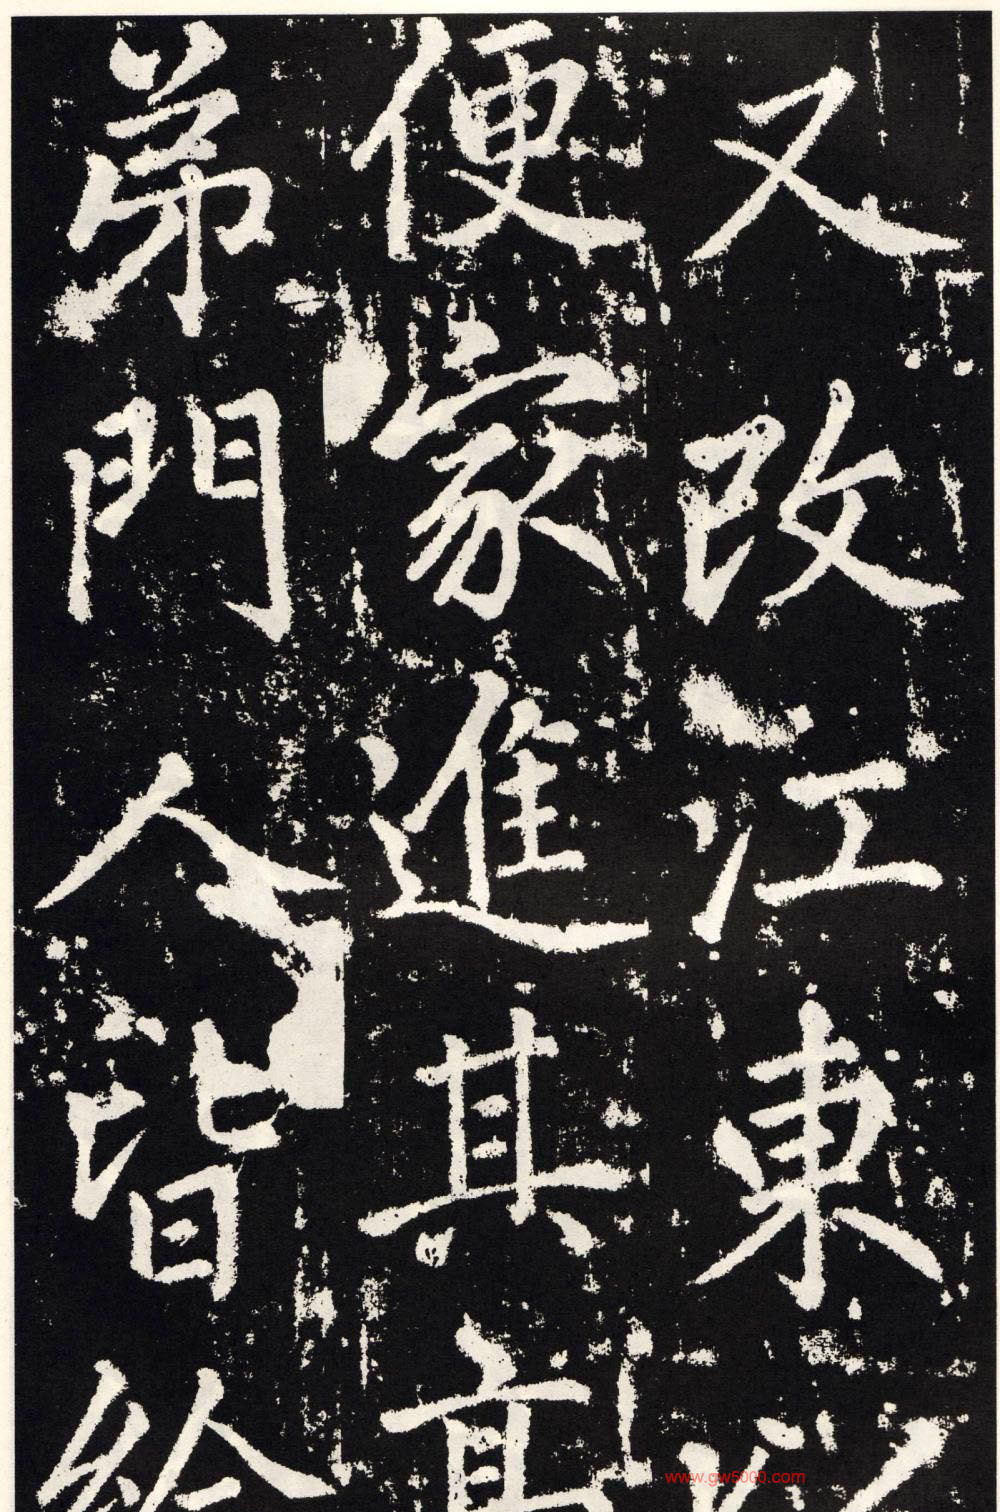 又改江東
便家進其
弟門人皆
www.gw5000.com